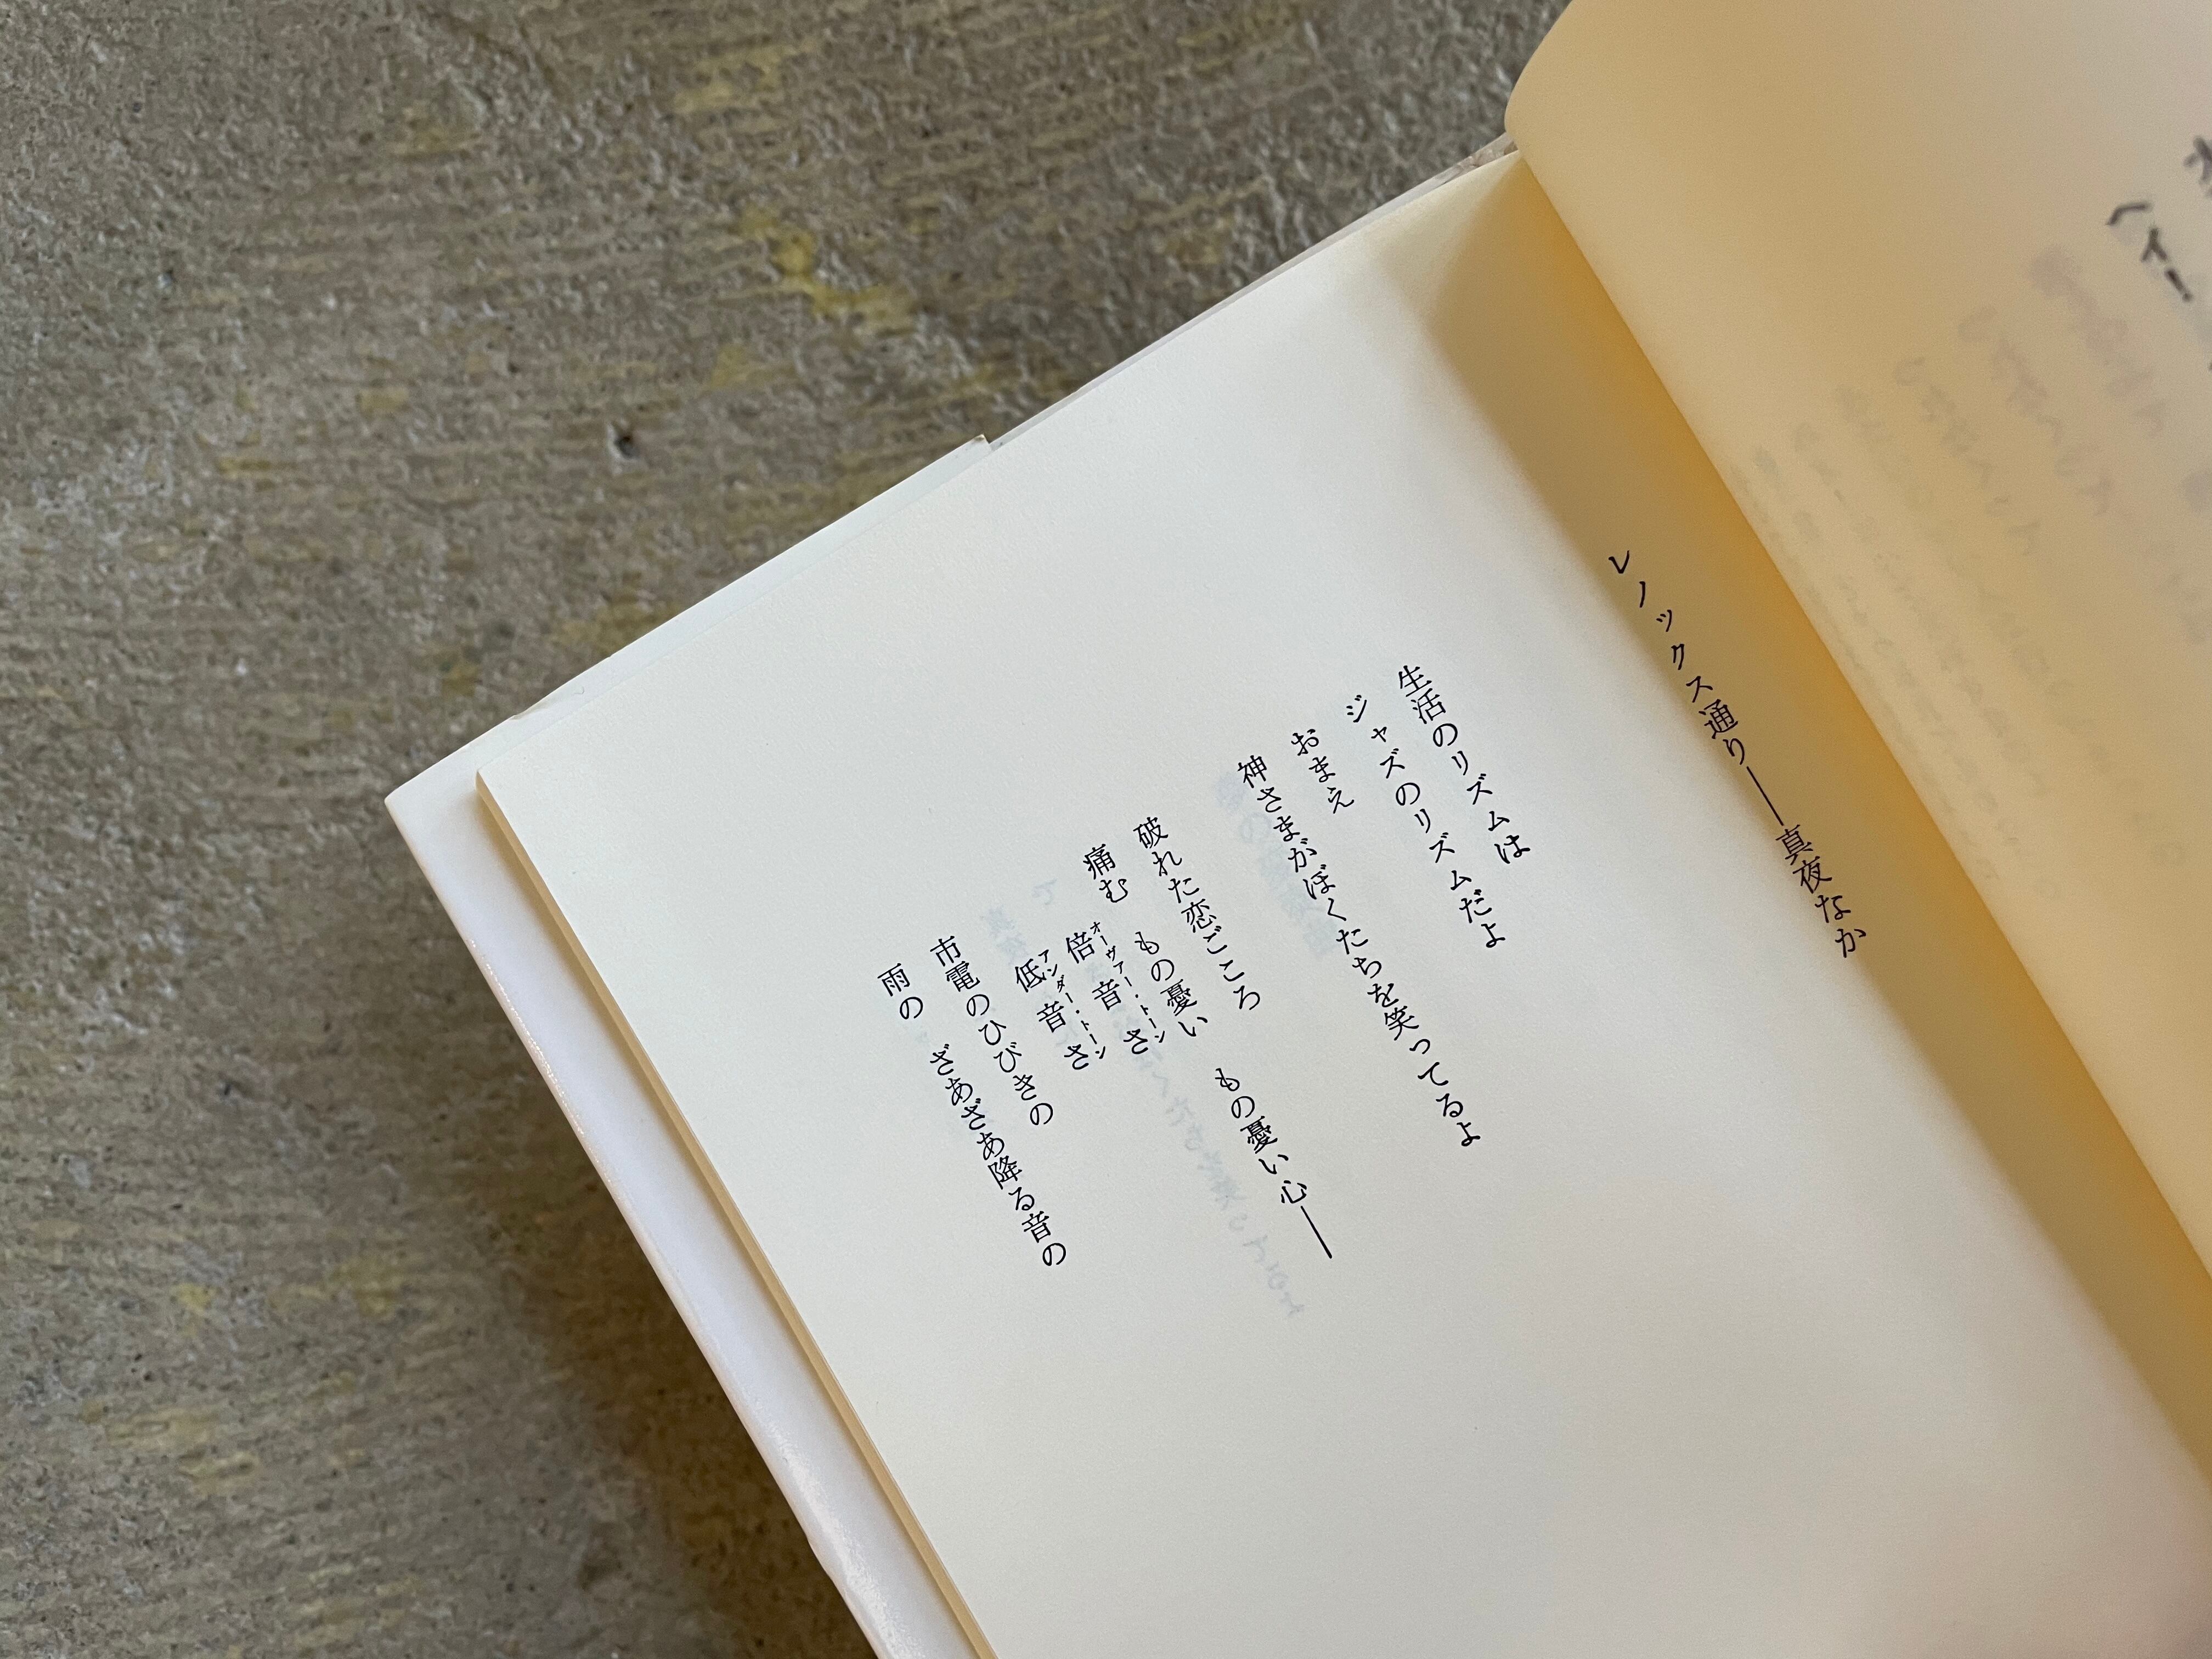 ヘイ！
レノックス通り——真夜なか
生活のリズムは
ジャズのリズムだよ
おまえ
神さまがぼくたちを笑ってるよ
破れた恋ごころ　もの憂い心——
痛む　もの憂い
倍音さ
オーヴァー・トーン
低音さ
アンダー・トーン
市電のひびきの
雨の　ざあざあ降る音の